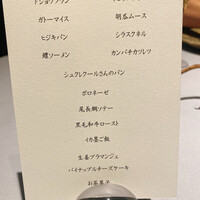 ガトーマイス　胡瓜ムース
ヒジキパン　シラスクネル
鰹ソーメン　カンパチカツレツ
シュクレクールさんのパン
ボロネーゼ
尾長鯛ソテー
黒毛和牛ロースト
イカ墨ご飯
生姜ブラマンジェ
パイナップルチーズケーキ
お茶菓子